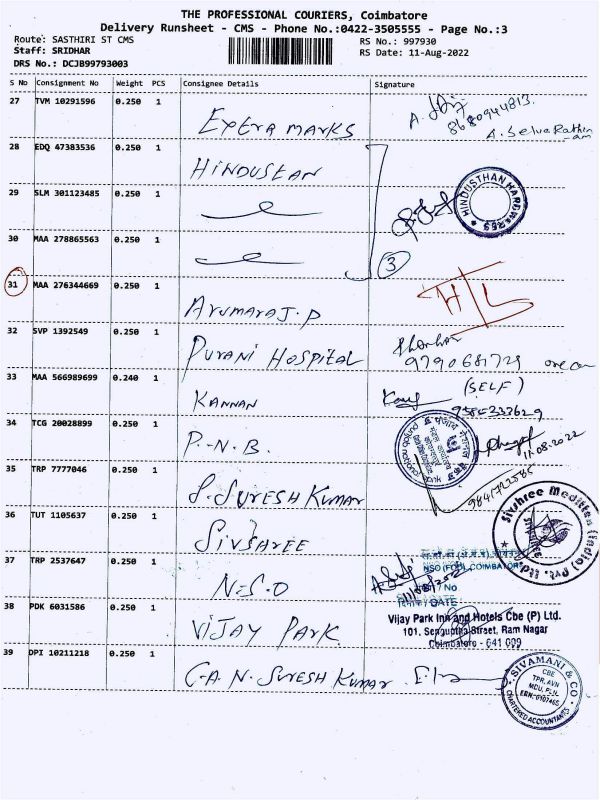 THE PROFESSIONAL COURIERS, Coimbatore
Delivery Runsheet - CMS - Phone No.:0422-3505555 - Page No.:3
Route: SASTHIRI ST CMS
RS No.: 997930
Staff: SRIDHAR
RS Date: 11-Aug-2022
DRS No.: DCJB99793003
S No Consignment No Weight PCS Consignee Details Signature
27 TVM 10291596 0.250 1 Extra marks
A. 8680944813.
A. Selva Rathin
am
28 EDQ 47383536 0.250 1 HINDUSTAN
29 SLM 301123485 0.250 1
HINDUSTHAN HARDWARES
30 MAA 278865563 0.250 1
3
31 MAA 276344669 0.250 1 Arumaraj.P
H/L
32 SVP 1392549 0.250 1 PURANI HOSPITAL
9790681729
33 MAA 566989699 0.240 1 KANNAN
(SELF)
34 TCG 20028899 0.250 1 P.N.B.
11.08.2022
35 TRP 7777046 0.250 1 S. SURESH KUMAR
36 TUT 1105637 0.250 1 SIVSHREE
Sivshree Meditten (India) Pvt. Ltd.
37 TRP 2537647 0.250 1 N.S.O
NSO (FOD), COIMBATORE
No
DATE
38 PDK 6031586 0.250 1 VIJAY PARK
Vijay Park Inn and Hotels Cbe (P) Ltd.
101, Sengupta Street, Ram Nagar
Coimbatore - 641 009
39 DPI 10211218 0.250 1 C.A. N. SURESH KUMAR
SIVAMANI & CO.
CBE
TPR, AVN
MDU, PLN.
CHARTERED ACCOUNTANTS